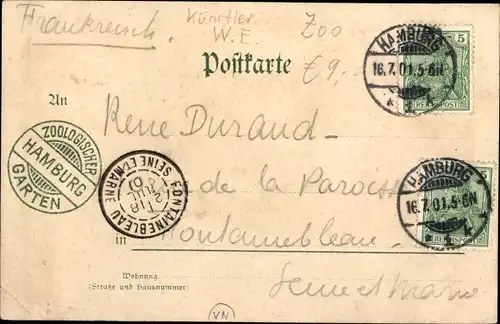 Frankreich.
Künstler
W. E
Zoo
€9,-
Postkarte
HAMBURG
16.7.01.5-6N
5
REICHSPOST
An
Rene Durand
ZOOLOGISCHER
HAMBURG
GARTEN
FONTAINEBLEAU
SEINE ET MARNE
18
01
HAMBURG
16.7.01.5-6N
5
REICHSPOST
de la Paroisse
in
Fontainebleau.
Seine et Marne
Wohnung
(Straße und Hausnummer)
VN